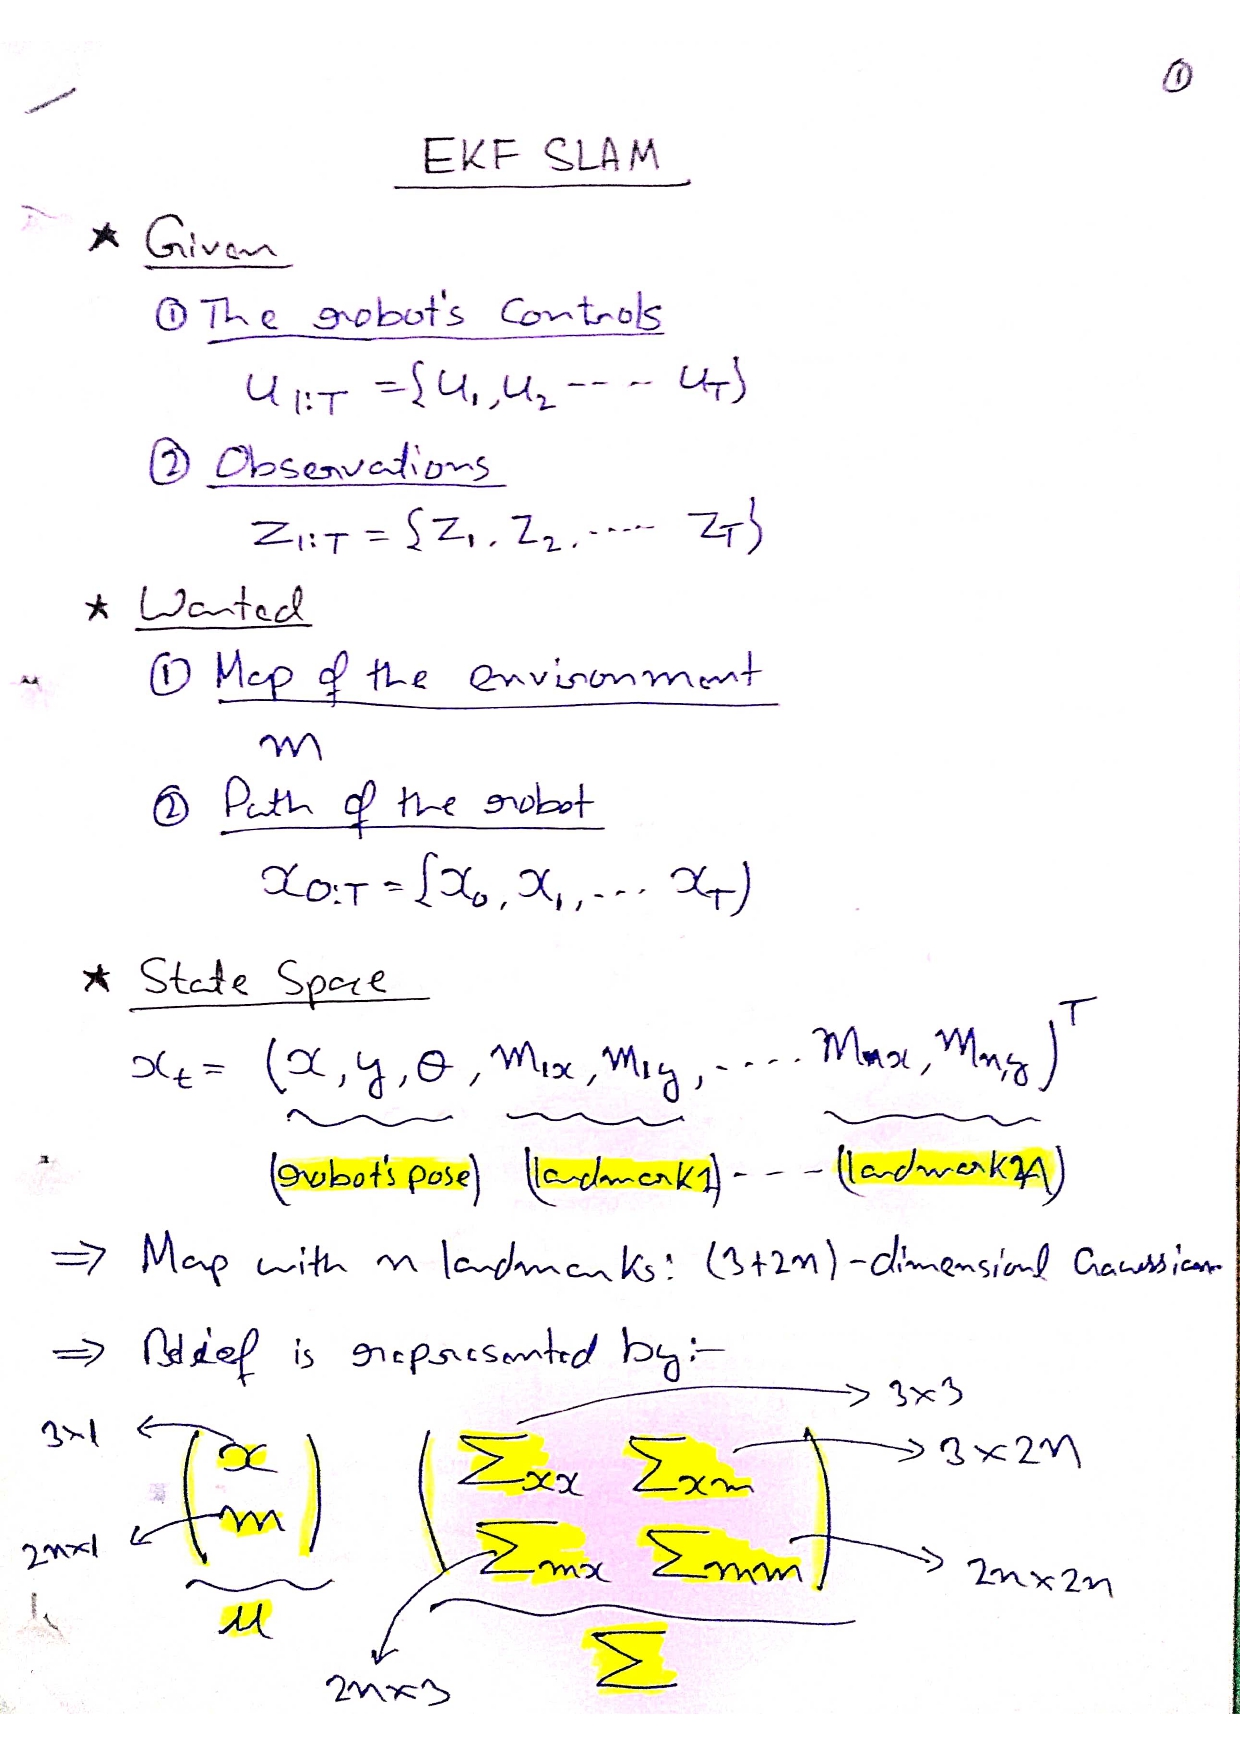 ①
EKF SLAM
★ Given
① The robot's Controls
u₁:T = {u₁, u₂ ---- uT}
② Observations
z₁:T = {z₁, z₂, ..... zT}
★ Wanted
① Map of the environment
m
② Path of the robot
x₀:T = {x₀, x₁, ... xT}
★ State Space
xt = (x, y, θ, m₁x, m₁y, .... mnx, mn,y)ᵀ
(robot's pose) (landmark1) --- (landmark n)
⇒ Map with n landmarks: (3+2n)-dimensional Gaussian
⇒ Belief is represented by:-
3×1 (x m) μ 2n×1
(Σxx Σxm Σmx Σmm) Σ
3×3
3×2n
2n×2n
2n×3